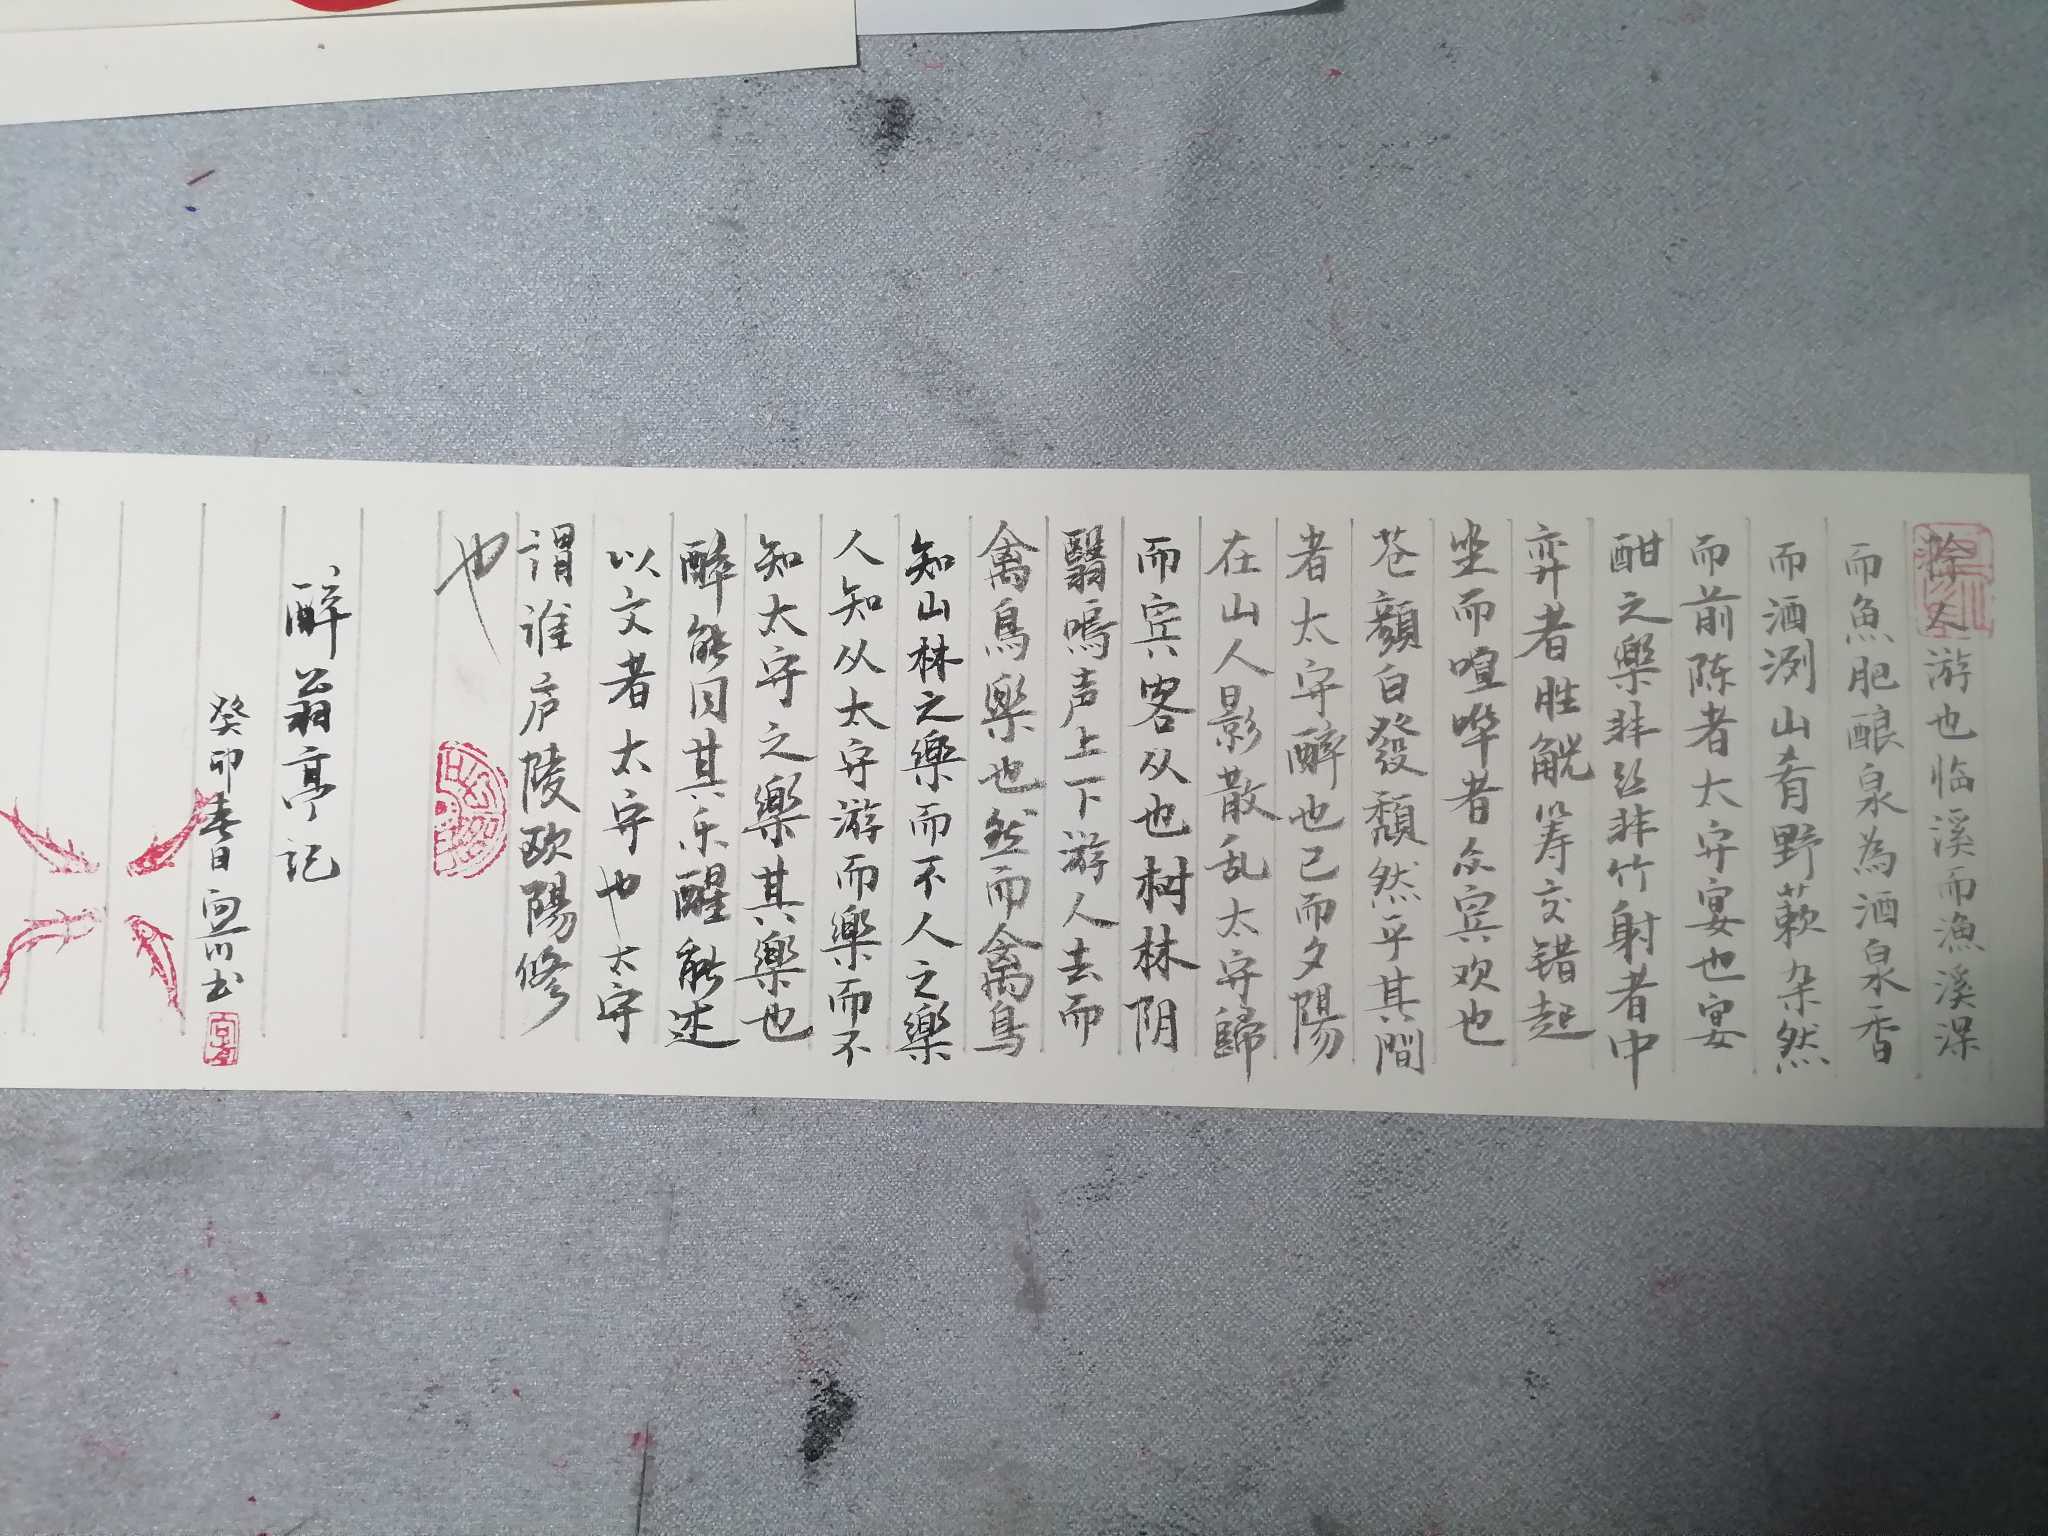 滁人游也临溪而漁溪深
而魚肥酿泉為酒泉香
而酒洌山肴野蔌杂然
而前陈者太守宴也宴
酣之樂非丝非竹射者中
弈者胜觥筹交错起
坐而喧哗者众宾欢也
苍顔白發頹然乎其間
者太守醉也已而夕陽
在山人影散乱太守歸
而宾客从也树林阴
翳鳴声上下游人去而
禽鳥樂也然而禽鳥
知山林之樂而不人之樂
人知从太守游而樂而不
知太守之樂其樂也
醉能同其乐醒能述
以文者太守也太守
謂谁庐陵欧陽修
也
醉翁亭記
癸卯春日宜川书